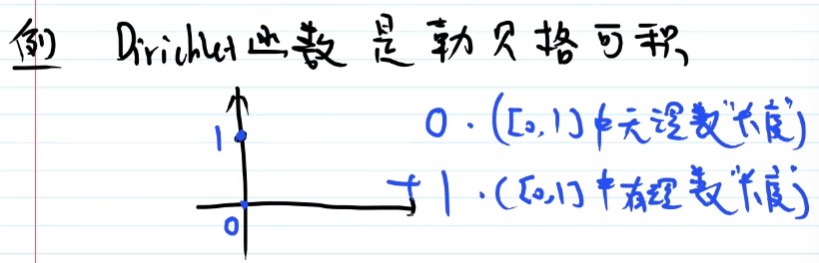 例 Dirichlet函数是勒贝格可积
1
0·([0,1]中无理数"长度")
+1·([0,1]中有理数"长度")
0